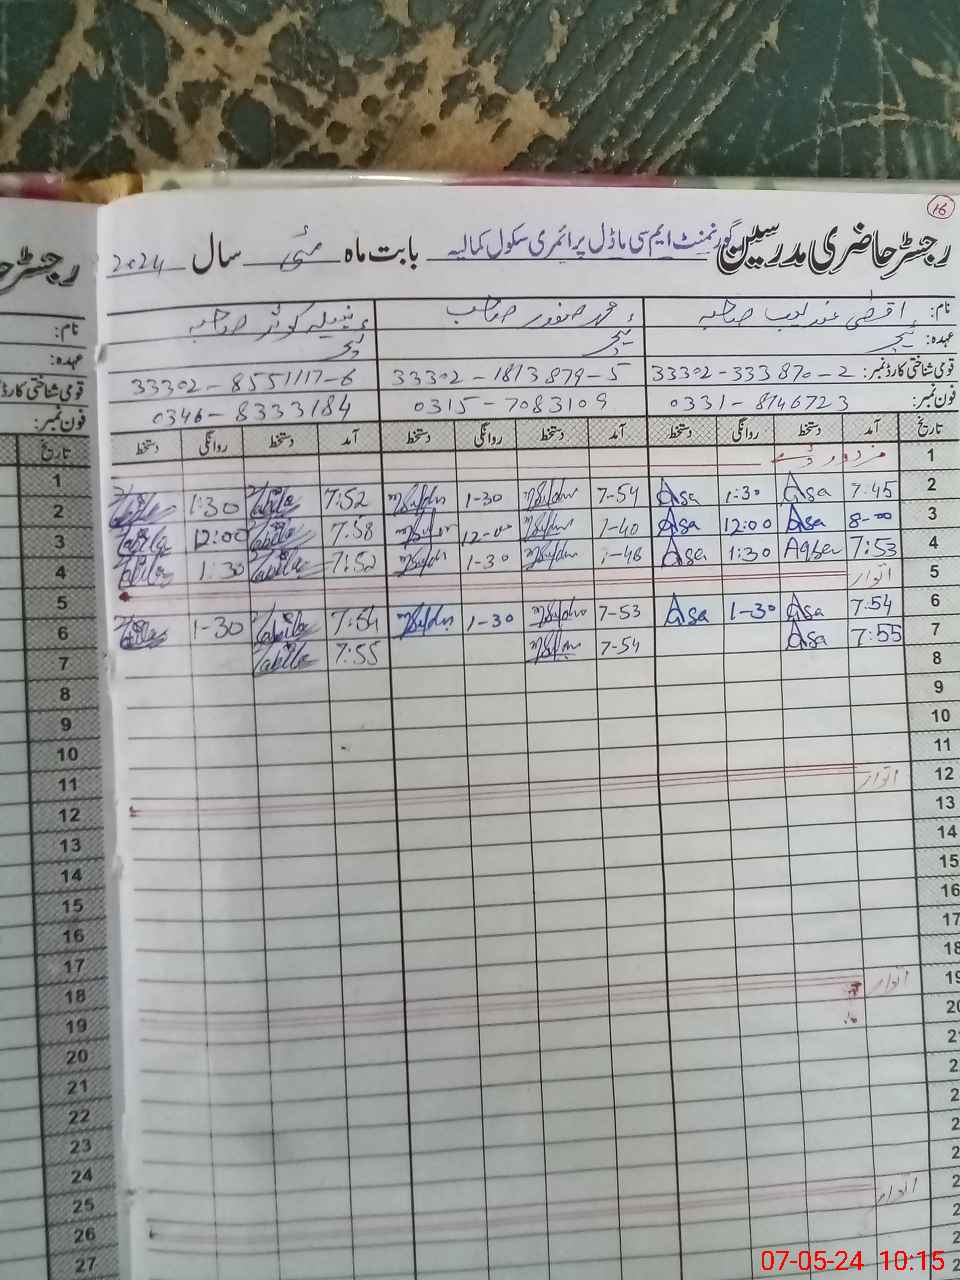 16
رجسٹر حاضری مدرسین گورنمنٹ ایم سی ماڈل پرائمری سکول کمالیہ بابت ماہ مئی سال 2024
نام: اقصیٰ عندلیب صاحبہ محمد صفدر صاحب نبیلہ کوثر صاحبہ
عہدہ: ٹیچر ٹیچر ٹیچر
قومی شناختی کارڈ نمبر: 33302-333870-2 33302-1813879-5 33302-8551117-6
فون نمبر: 0331-8746723 0315-7083109 0346-8333184
تاریخ آمد دستخط روانگی دستخط آمد دستخط روانگی دستخط آمد دستخط روانگی دستخط
1 مزدور ڈے
2 7:45 Asa 1:30 Asa 7-54 1-30 7:52 Nabila 1:30 Nabila
3 8-00 Asa 12:00 Asa 12-00 7:58 Nabila 12:00 Nabila
4 7:53 Aqsa 1:30 Asa 1-30 7:52 Nabila 1:30 Nabila
5 اتوار
6 7:54 Asa 1-30 Asa 7-53 1-30 7:54 Nabila 1-30 Nabila
7 7:55 Asa 7-54 7:55 Nabila
8
9
10
11
12 اتوار
13
14
15
16
17
18
19 اتوار
20
اتوار
رجسٹر
نام:
عہدہ:
قومی شناختی کارڈ
فون نمبر:
تاریخ
1
2
3
4
5
6
7
8
9
10
11
12
13
14
15
16
17
18
19
20
21
22
23
24
25
26
27
07-05-24 10:15